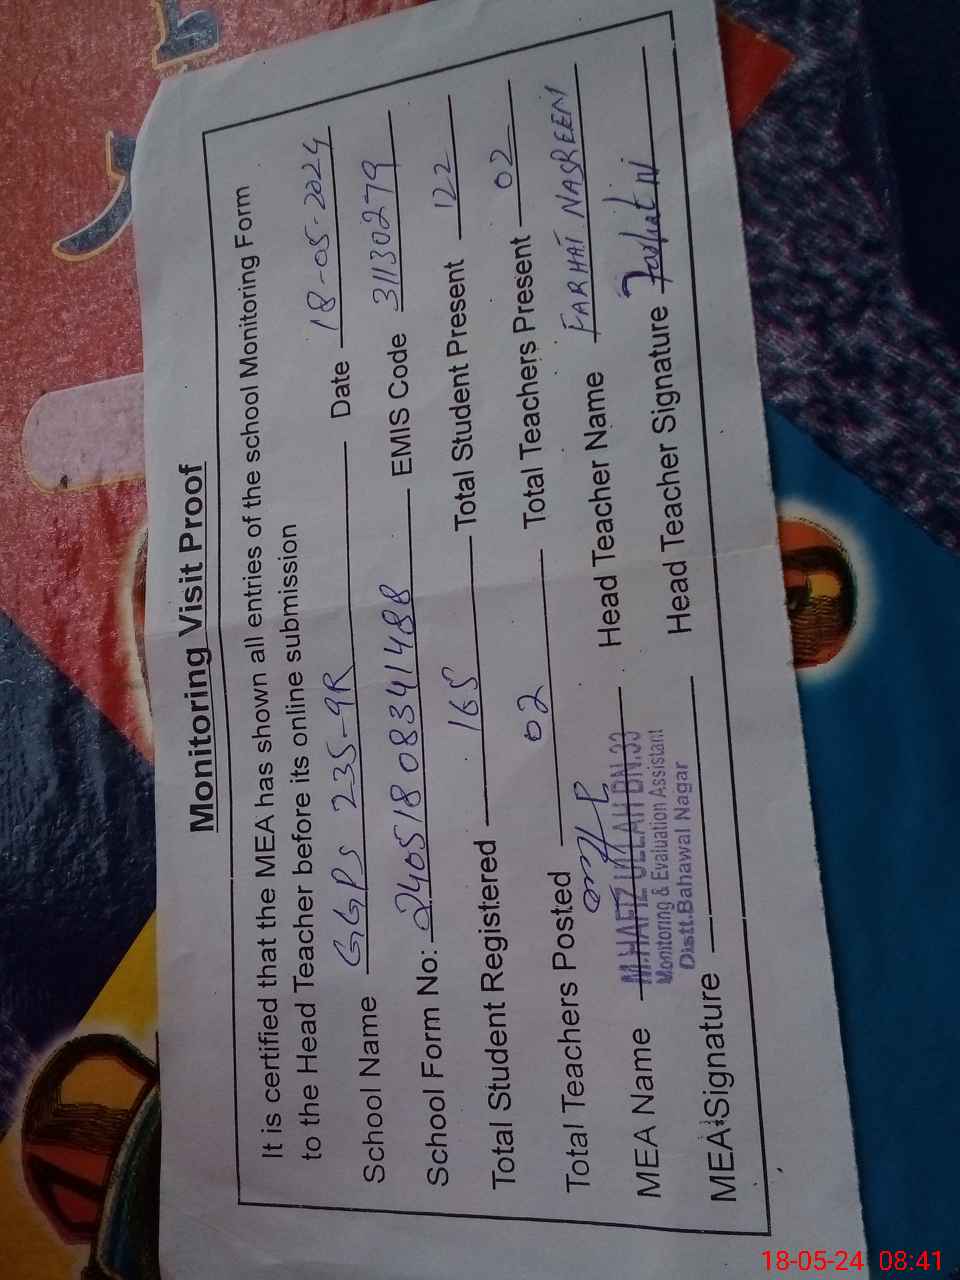 Monitoring Visit Proof
It is certified that the MEA has shown all entries of the school Monitoring Form
to the Head Teacher before its online submission
School Name GGPS 235-9R Date 18-05-2024
School Form No: 24051808341488 EMIS Code 31130279
Total Student Registered 165 Total Student Present 122
Total Teachers Posted 02 Total Teachers Present 02
MEA Name M.HAFIZ ULLAH BN.33 Head Teacher Name FARHAT NASREEN
Monitoring & Evaluation Assistant
Distt.Bahawal Nagar
MEA Signature Head Teacher Signature Farhat N
18-05-24 08:41